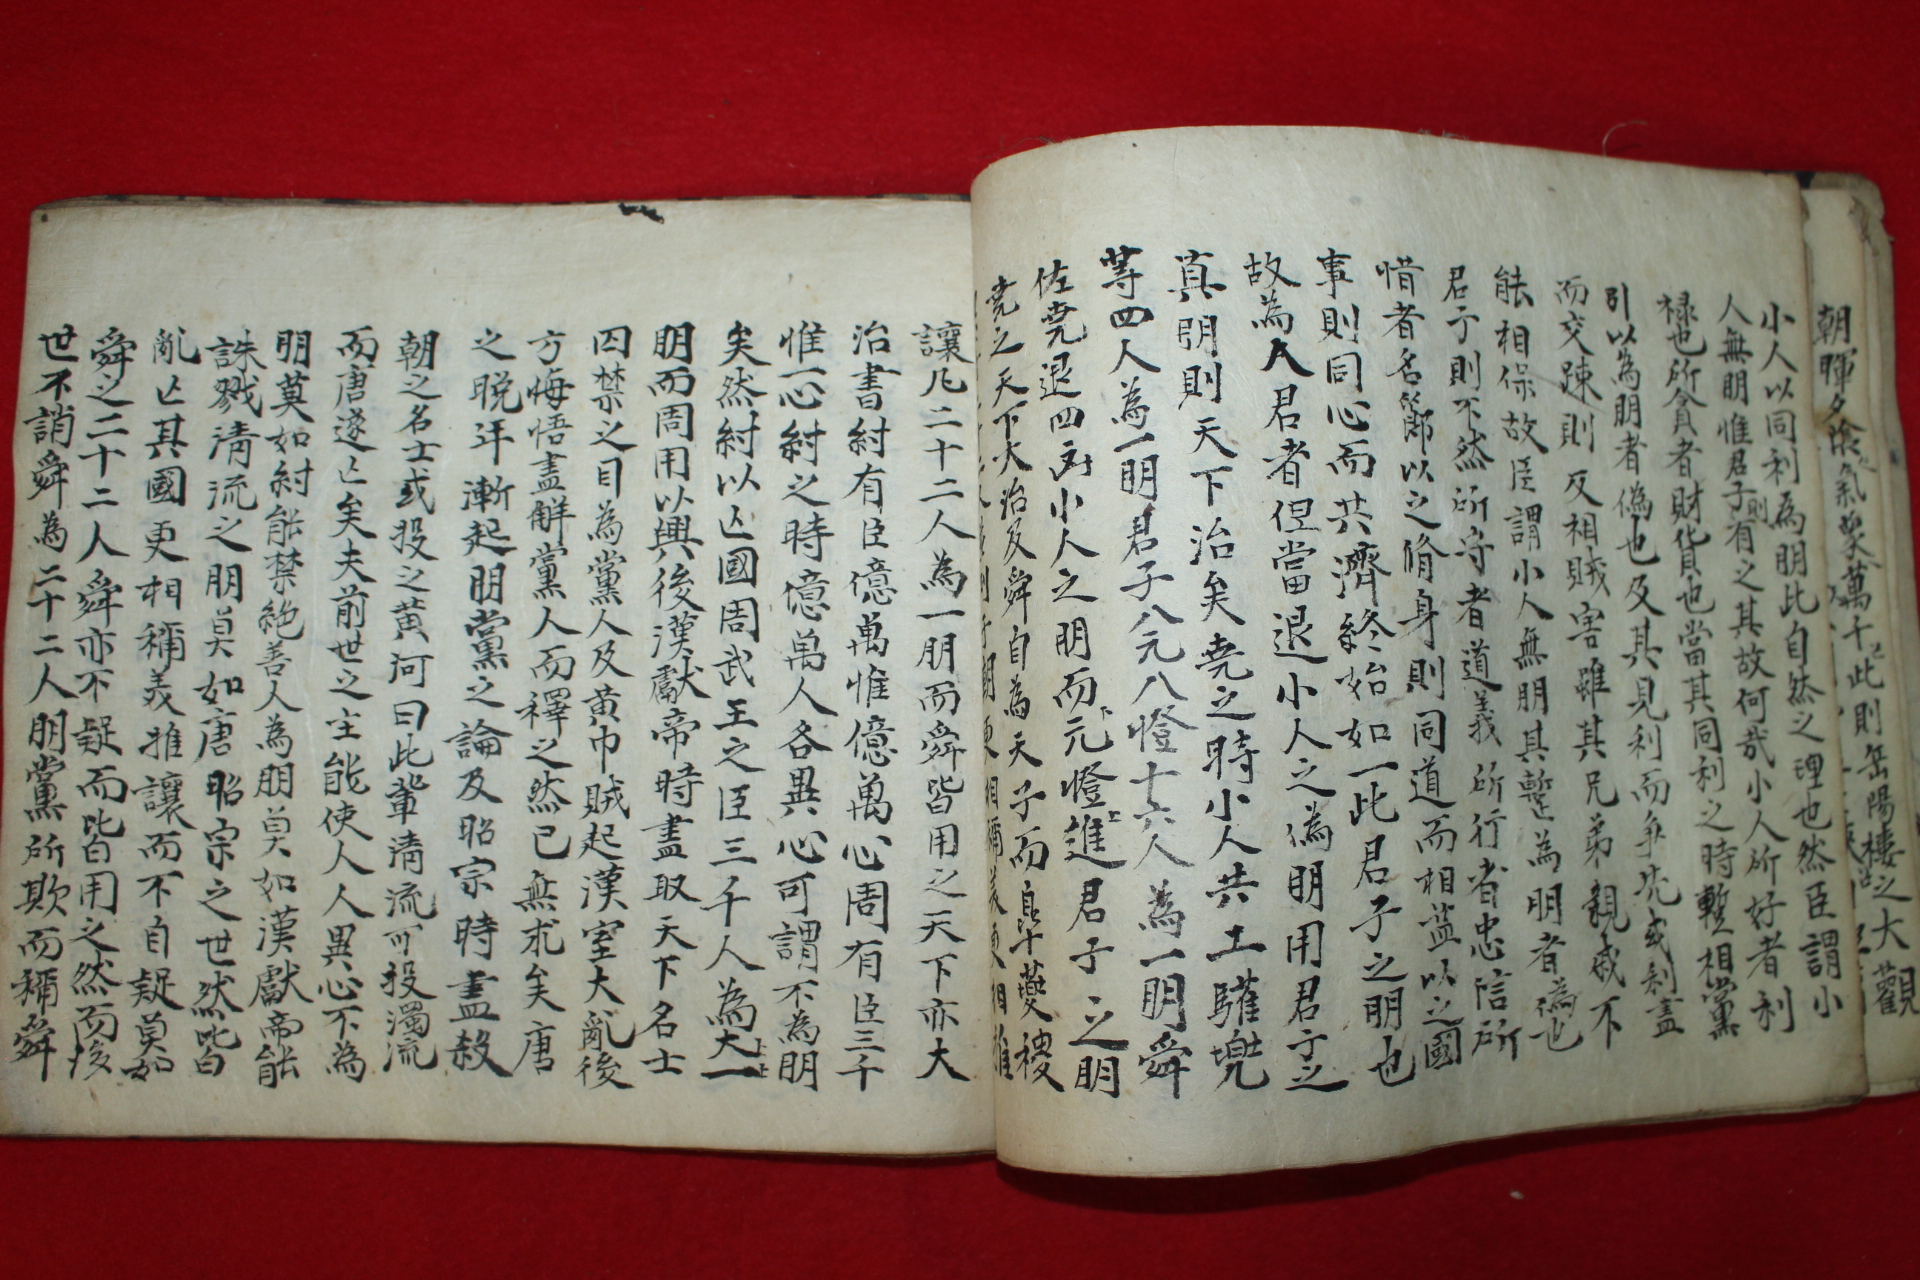 朝暉夕陰氣象萬千此則岳陽樓之大觀
小人以同利爲朋此自然之理也然臣謂小
人無朋惟君子則有之其故何哉小人所好者利
祿也所貪者財貨也當其同利之時暫相黨
引以爲朋者僞也及其見利而爭先或利盡
而交踈則反相賊害雖其兄弟親戚不
能相保故臣謂小人無朋其暫爲朋者僞也
君子則不然所守者道義所行者忠信所
惜者名節以之脩身則同道而相益以之國
事則同心而共濟終始如一此君子之朋也
故為人君者但當退小人之僞朋用君子之
真朋則天下治矣堯之時小人共工驩兜
等四人為一朋君子八元八愷十六人為一朋舜
佐堯退四凶小人之朋而元愷進君子之朋
堯之天下大治及舜自為天子而皐夔稷
讓凡二十二人為一朋而舜皆用之天下亦大
治書紂有臣億萬惟億萬心周有臣三千
惟一心紂之時億萬人各異心可謂不為朋
矣然紂以亡國周武王之臣三千人為大一
朋而周用以興後漢獻帝時盡取天下名士
囚禁之目為黨人及黃巾賊起漢室大亂後
方悔悟盡解黨人而釋之然已無求矣唐
之晚年漸起朋黨之論及昭宗時盡殺
朝之名士或投之黃河曰此輩淸流可投濁流
而唐遂亡矣夫前世之主能使人人異心不為
朋莫如紂能禁絶善人為朋莫如漢獻帝能
誅戮淸流之朋莫如唐昭宗之世然皆
亂亡其國更相稱美推讓而不自疑莫如
舜之二十二人舜亦不疑而皆用之然而後
世不誚舜為二十二人朋黨所欺而稱舜